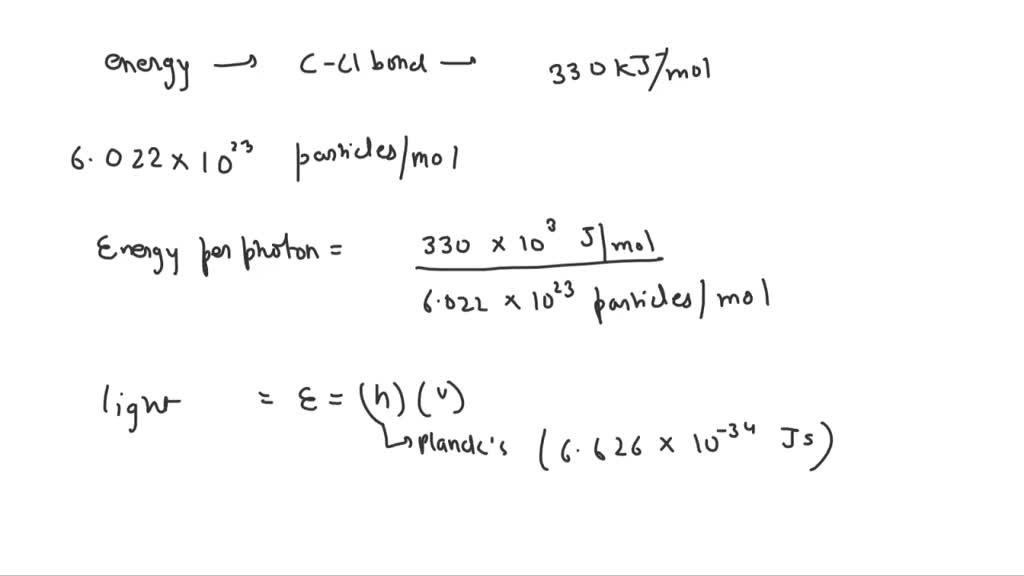 energy → C-Cl bond → 330 kJ/mol
6.022 × 10²³ particles/mol
Energy per photon = 330 × 10³ J/mol
6.022 × 10²³ particles/mol
light = E = (h) (ν)
↳ Planck's (6.626 × 10⁻³⁴ Js)